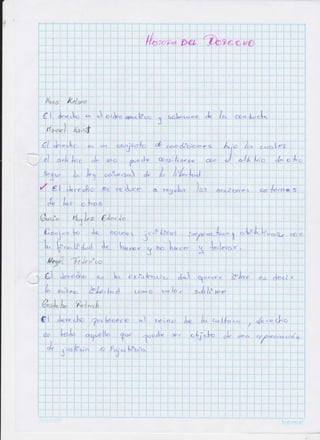 Historia DEL DERECHO
Hans Kelsen
El derecho es el orden normativo y soberano de la conducta
Manuel Kant
El derecho es un conjunto de condiciones bajo las cuales
el arbitrio de uno puede conciliarse con el arbitrio de otro
según la ley universal de la libertad
✓ El derecho se reduce a regular las acciones externas
de los otros
García Maynez Eduardo
Conjunto de normas
la finalidad de hacer y no hacer y tolerar.
Hegel Federico
El derecho es la existencia del querer libre es decir,
la misma libertad como valor sublime
Gustavo Radbruch
El derecho pertenece al reino de la cultura, derecho
es todo aquello que puede ser objeto de una
de justicia o injusticia